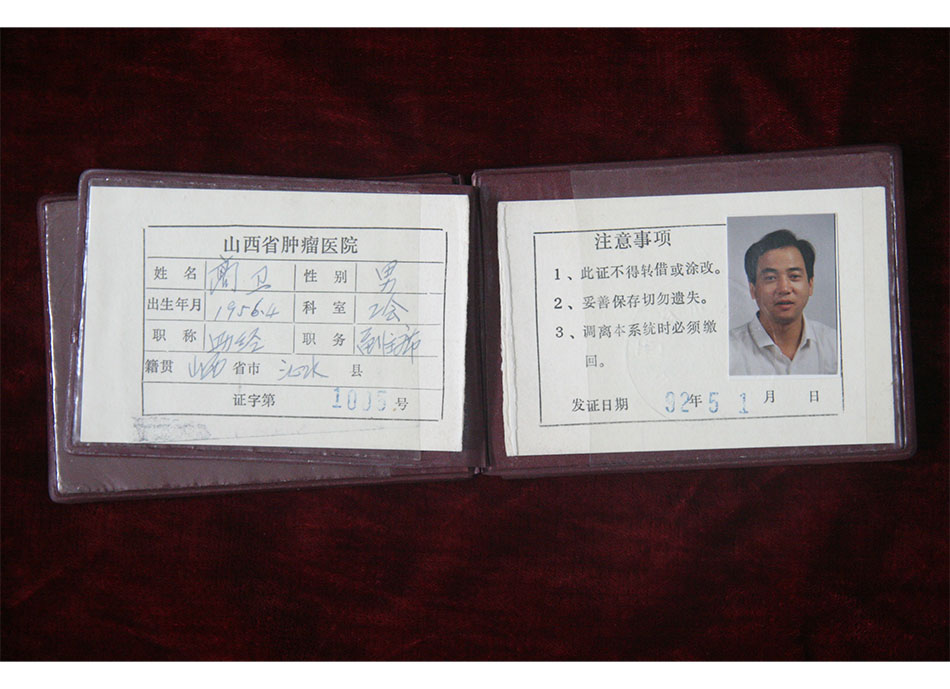 山西省肿瘤医院
姓 名 性 别 男
出生年月 1956.4 科 室 工会
职 称 职 务 副主席
籍贯 山西 省市 沁水 县
证字第 1005 号
注意事项
1、此证不得转借或涂改。
2、妥善保存切勿遗失。
3、调离本系统时必须缴
回。
发证日期 92年 5 1 月 日